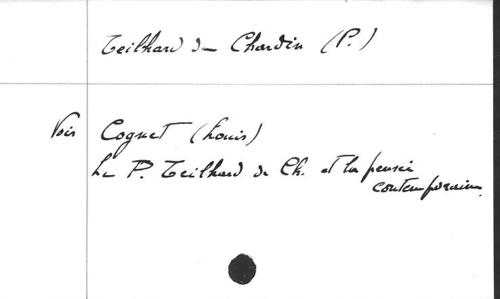 Teilhard de Chardin (P.)
Voir Cognet (Louis)
Le P. Teilhard de Ch. et la pensée
contemporaine.